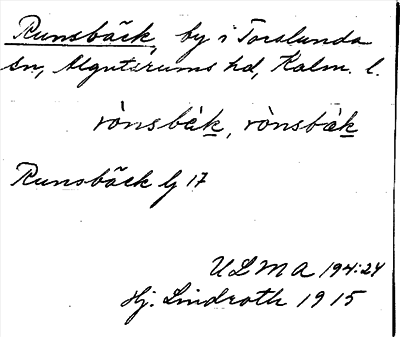 Runsbäck, by i Torslunda
sn, Algutsrums hd, Kalm. l.
rònsbàk, rònsbæk
Runsbäck Lj 17
ULMA 194:24
Hj. Lindroth 1915